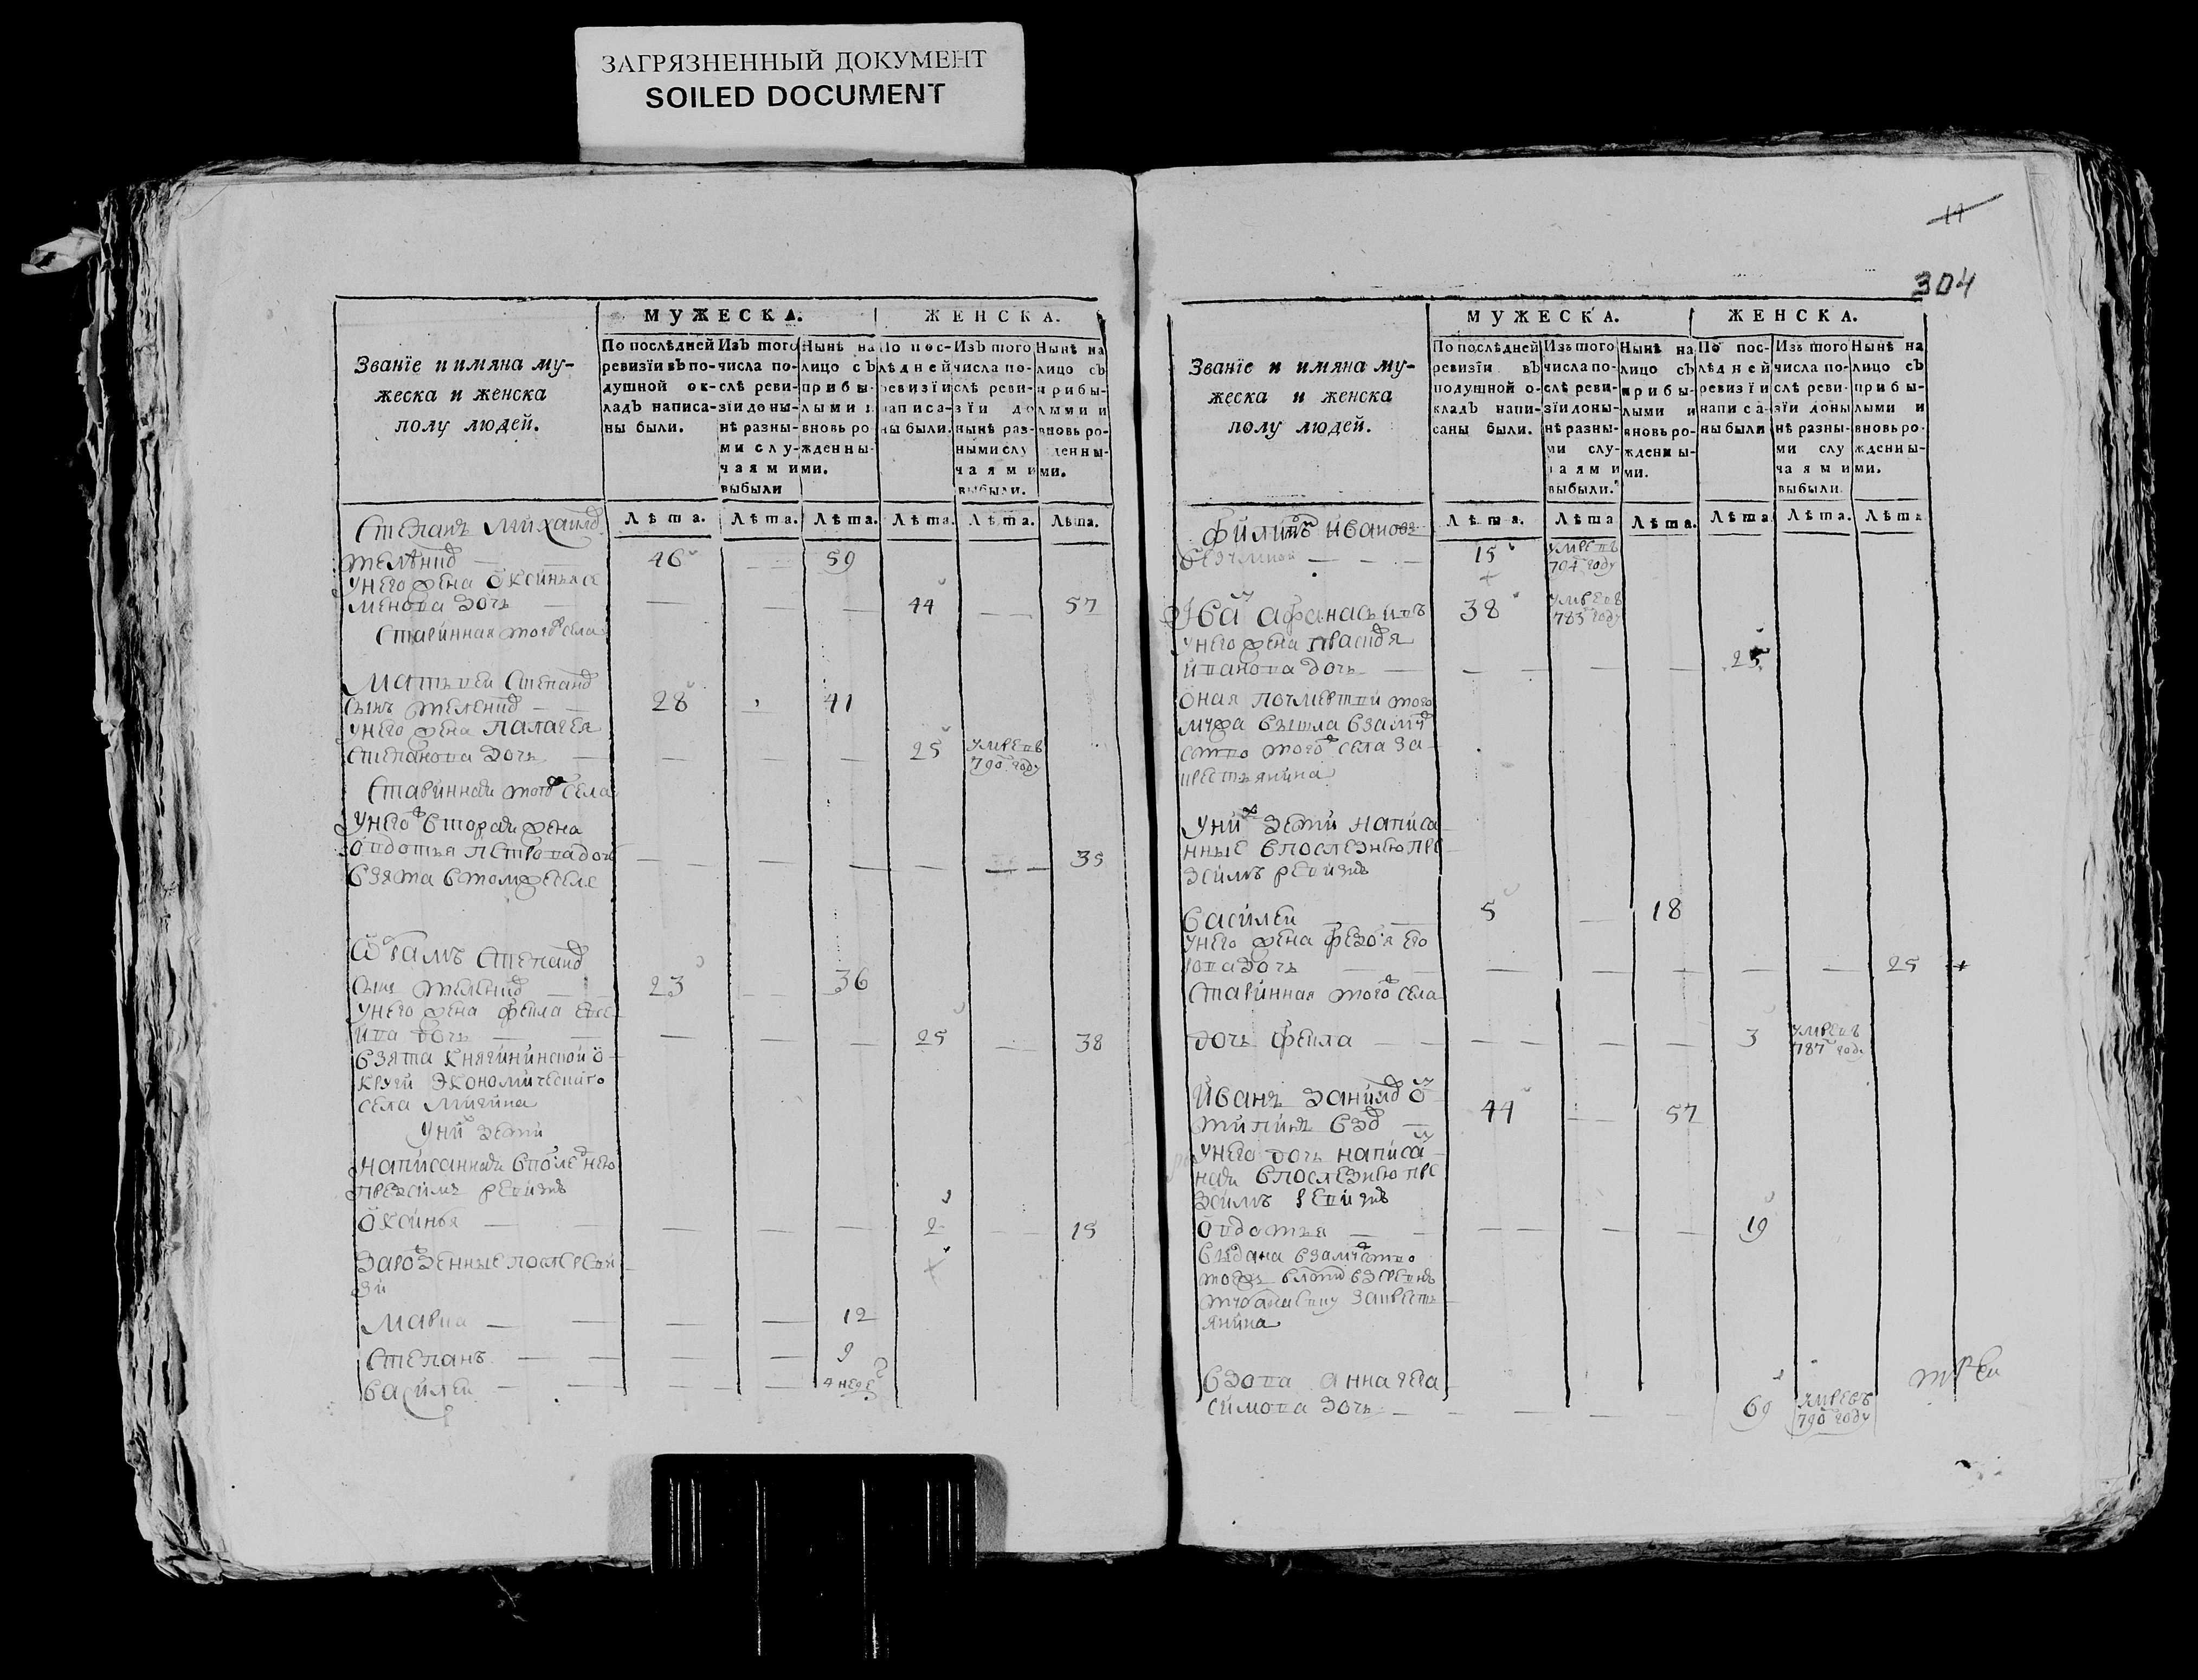 ЗАГРЯЗНЕННЫЙ ДОКУМЕНТ
SOILED DOCUMENT
МУЖЕСКА. ЖЕНСКА.
Званїе и имяна му-
жеска и женска
полу людей.
По послѣдней
ревизїи въ по-
душной ок-
ладъ написа-
ны были.
Изъ того
числа по-
слѣ реви-
зїи до ны-
нѣ разны-
ми слу-
чаями
выбыли
Нынѣ на
лицо съ
прибы-
лыми и
вновь ро
жденны-
ми.
По пос-
лѣдней
ревизїи
написа-
ны были.
Изъ того
числа по-
слѣ реви-
зїи до
нынѣ раз-
ными слу
чаями
выбыли.
Нынѣ на
лицо съ
прибы-
лыми и
вновь ро-
жденны-
ми.
Лѣта. Лѣта. Лѣта. Лѣта. Лѣта. Лѣта.
Степанъ Михаилов
46 59
у него жена Оксинья се
менова дочь 44 57
Старинная того села
Матвеи Степанов
сынъ 28 41
у него жена Палагея
Степанова дочь 25 умре въ
790 году
Стариннаи того села
у него втораи жена
Овдотья Петрова дочь 35
взята в том же селе
Степанов
сынъ 23 36
у него жена Фекла Евсе
ива дочь 25 38
взята Княгининской о
круги экономическаго
села
у них дети
написаннаи в последнею
пред сим ревизию
Оксинья 2 15
зарожденные после реви
зи
Марка 12
Степанъ 9
Василеи 4 неде
17
304
МУЖЕСКА. ЖЕНСКА.
Званїе и имяна му-
жеска и женска
полу людей.
По послѣдней
ревизїи въ
подушной о-
кладъ напи-
саны были.
Изъ того
числа по-
слѣ реви-
зїи до ны-
нѣ разны-
ми слу-
чаями
выбыли.
Нынѣ на
лицо съ
прибы-
лыми и
вновь ро-
жденны-
ми.
По пос-
лѣдней
ревизїи
написа-
ны были
Изъ того
числа по-
слѣ реви-
зїи до ны
нѣ разны-
ми слу
чаями
выбыли.
Нынѣ на
лицо съ
прибы-
лыми и
вновь ро-
жденны-
ми.
Лѣта. Лѣта Лѣта. Лѣта Лѣта. Лѣта
Филипъ Иванов
15 умре въ
794 году
Иван Афанасьивъ 38 умре въ
783 году
у него жена Прасковя
Иванова дочь 25
оная по смертии того
мужа вышла в замуж
ство того села за
крестьянина
у них дети написа
нные в последнею пре
д сим ревизию
Василеи 5 18
у него жена Федося Его
рова дочь 25
Старинная того села
дочь Фекла 3 умре въ
787 году
Иванъ Данилов
44 57
у него дочь написан
наи в последнею пре
д сим ревизию
Овдотья 19
выдана в замуство
за крестъ
янина
вдова Анна Гера
симова дочь 69 умре въ
790 году